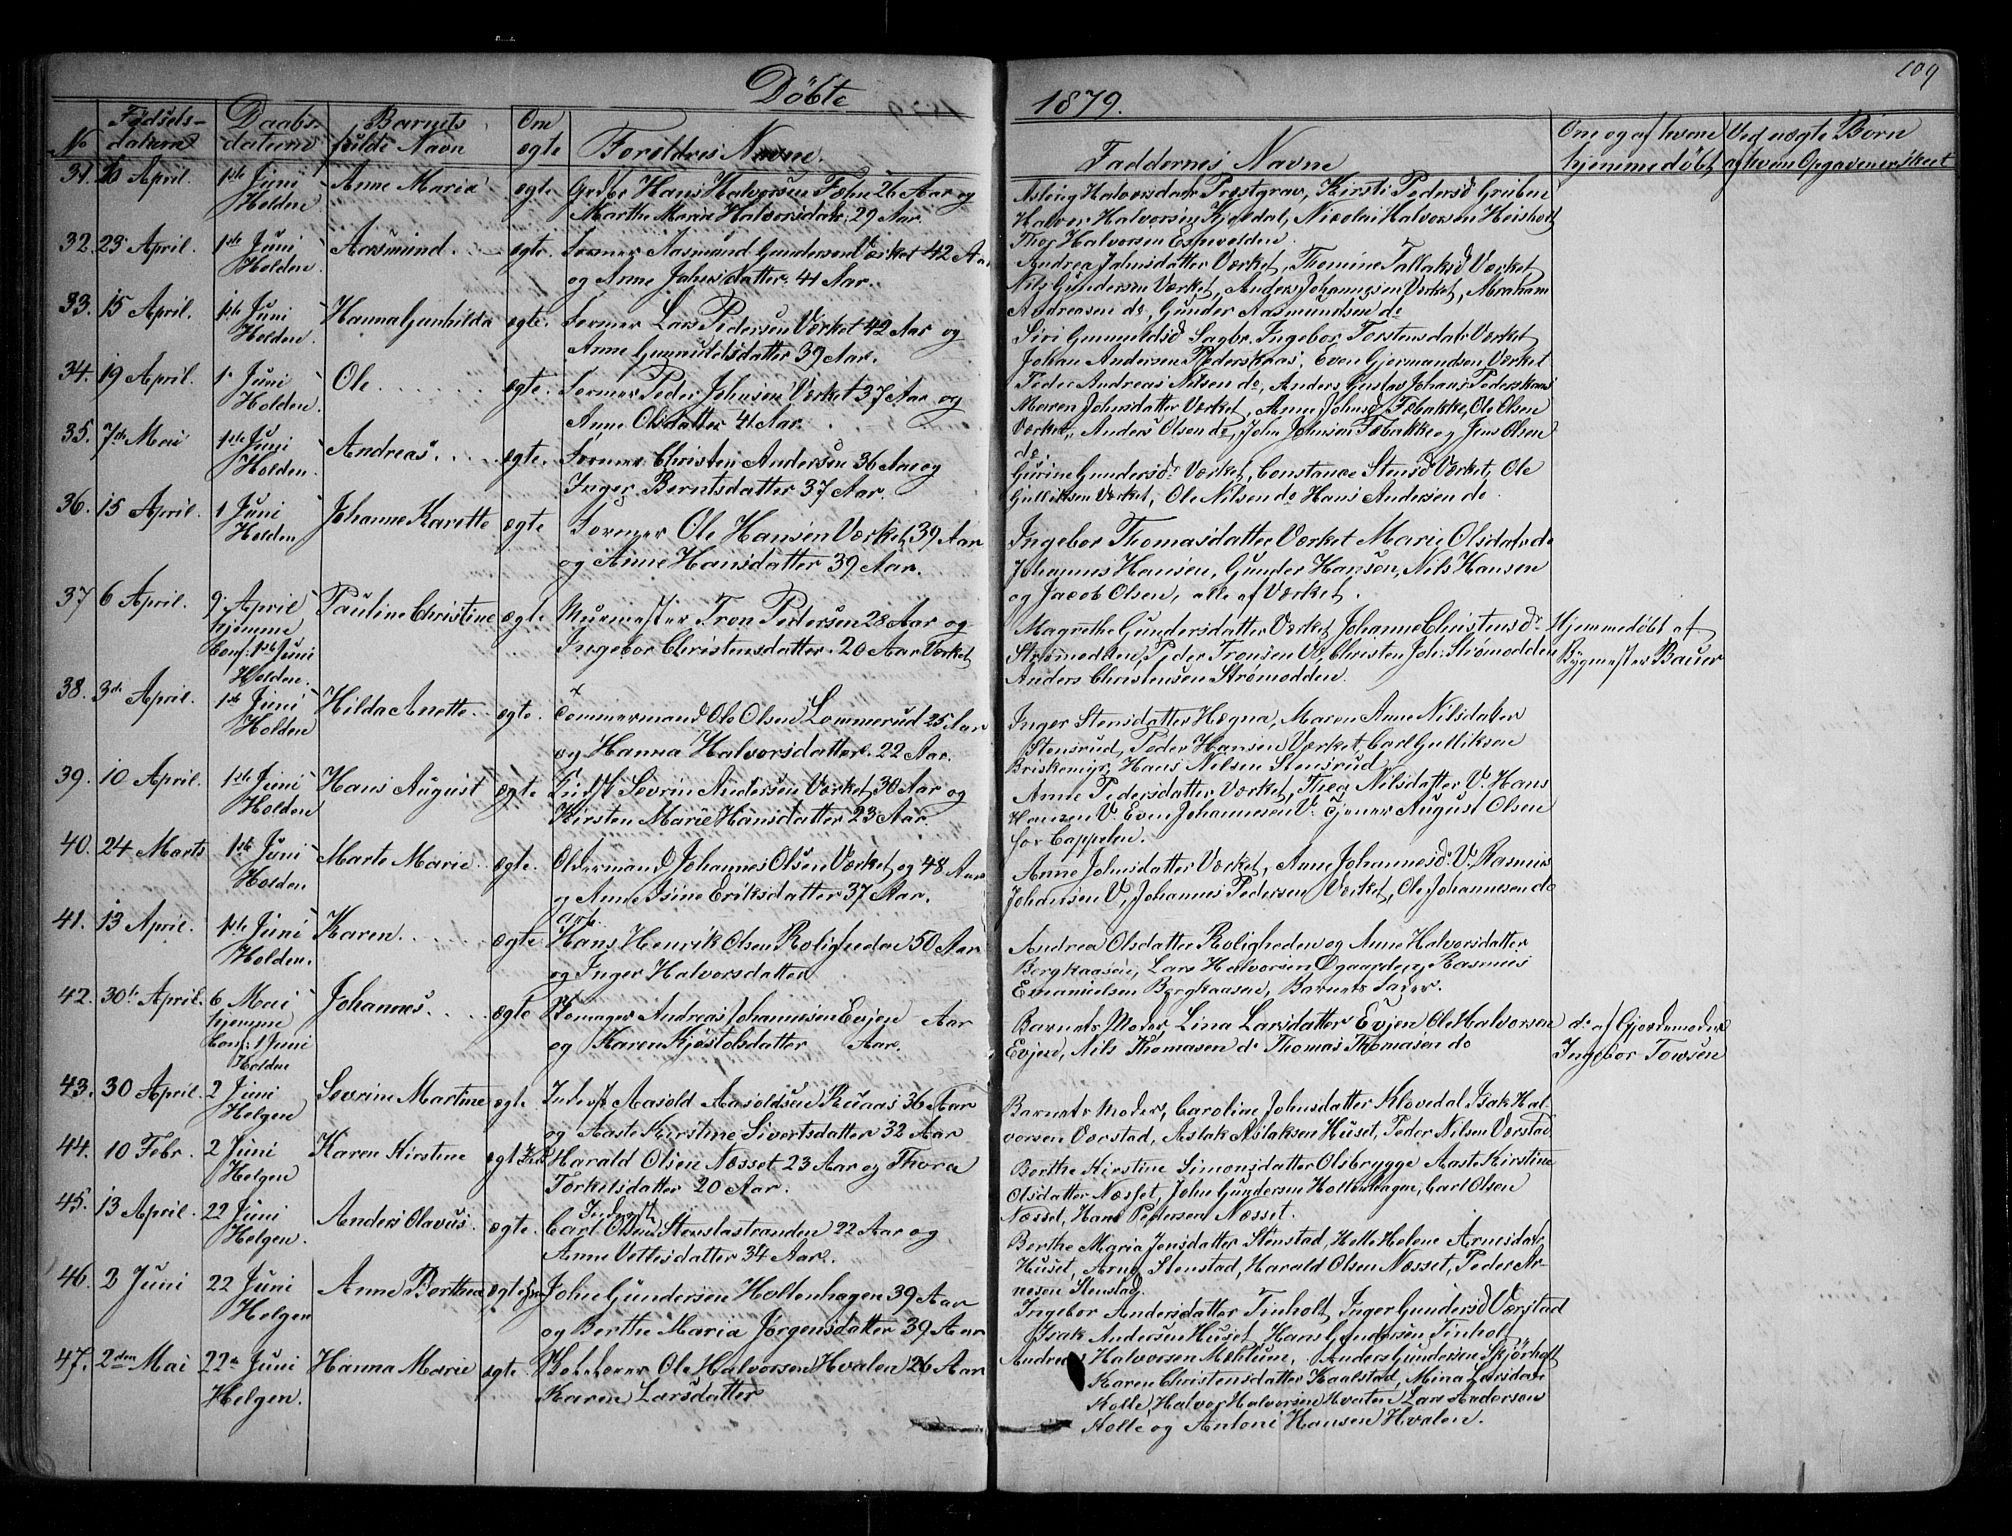 109
Döbte
1879.
No
Fødsels-
datum
Daabs-
datum
Barnets
fulde Navn
Om
ægte
Forældres Navne.
Faddernes Navne
Om og af hvem
hjemmedöbt
Ved uægte Börn
af hvem Opgaven er skeet
31. April. 1ste Juni Holden Anne Maria ægte Hans Halvorsen 26 Aar og
Marthe Marie Halvorsdatr. 29 Aar.
Aslaug Halvorsdatr Prestgrav, Kirsti Pedersd Greiben
Halvor Halvorsen Kjeldal, Nicolai Halvorsen Heisholt
Thor Halvorsen Espevolden.
32. 23 April. 1ste Juni Holden. Aasmund. ægte. Former Aasmund Gundersen Værket 42 Aar
og Anne Johnsdatter 41 Aar.
Andrea Johnsdatter Værket, Thomine Tallaksd Værket
Nils Gundersen Værket, Anders Johannesen Værket, Abraham
Andreasen do, Gunder Aasmundsen do
33. 15 April. 1ste Juni Holden. Hanna Gunhilda ægte. Former Lars Pedersen Værket 42 Aar og
Anne Gunnuldsdatter 39 Aar.
Siri Gunnuldsd Sagbr. Ingebor Torstensdatr Værket
Johan Andersen Pederskaas, Even Gjermundsen Værket
Peder Andreas Nilsen do, Anders Gustav Johans Pederskaas
34. 19 April. 1 Juni Holden. Ole ægte. Former Peder Johnsen Værket 37 Aar og
Anne Olsdatter 41 Aar.
Maren Johnsdatter Værket, Anne Johnsd Fæbakke, Ole Olsen
Værket, Anders Olsen do, John Johnsen Fæbakke og Jens Olsen
do.
35. 7de Mai 1ste Juni Holden. Andreas. ægte. Former Christen Andersen 36 Aar og
Inger Berntsdatter 37 Aar.
Gurine Gundersdr Værket, Constance Stensd Værket, Ole
Gulliksen Værket, Ole Nilsen do Hans Andersen do.
36. 15 April. 1 Juni Holden Johanne Karette ægte Former Ole Hansen Værket, 39 Aar
og Anne Hansdatter 39 Aar.
Ingebor Thomasdatter Værket Marie Olsdatr do
Johannes Hansen, Gunder Hansen, Nils Hansen
og Jacob Olsen, alle af Værket.
37 6 April. 9. April hjemme Conf. 1ste Juni Holden. Pauline Christine ægte Murmester Tron Pedersen 28 Aar og
Ingebor Christensdatter. 20 Aar Værket
Magrethe Gundersdatter Værket, Johanne Christensdr
Strømodden, Peder Tronsen V, Christen Joh. Strømodden
Anders Christensen Strømodden.
Hjemmedöbt af
Bygmester Bauer
38. 3de April. 1ste Juni Holden Hilda Anette. ægte. Tömmermand Ole Olsen Lommerud 25 Aar
og Hanna Halvorsdatter. 22 Aar.
Inger Stensdatter Hægna, Maren Anne Nilsdatter
Stensrud, Peder Hansen Værket, Carl Gulliksen
Briskemyr, Hans Nilsen Stensrud
39. 10 April. 1ste Juni Holden Hans August ægte Indst Sevrin Andersen Værket 30 Aar og
Kirsten Marie Hansdatter 23 Aar.
Anne Pedersdatter Værket, Thea Nilsdatter V. Hans
Hansen V. Even Johannesen V. Tjener August Olsen
for Cappelen.
40. 24 Marts 1ste Juni Holden Marte Marie ægte. Oldermand Johannes Olsen Værket og 48 Aar
og Anne Isine Eriksdatter 37 Aar.
Anne Johnsdatter Værket, Anne Johannesd. V. Rasmus
Johansen V, Johannes Pedersen Værket, Ole Johannesen do
41. 13 April. 1ste Juni Holden. Karen. ægte arb. Hans Henrik Olsen Roligheden 50 Aar
og Inger Halvorsdatter
Andrea Olsdatter Roligheden og Anne Halvorsdatter
Bergkaasen, Lars Halvorsen Øgaarden, Rasmus
Emanuelsen Bergkaasen, Barnets Fader.
42. 30te April. 6 Mai hjemme Conf. 1 Juni Holden Johannes. ægte Skomager Andreas Johannesen Evjen Aar
og Karen Kjøstolsdatter Aar.
Barnets Moder, Lina Larsdatter Evjen Ole Halvorsen
Evjen, Nils Thomasen do Thomas Thomasen do
do af Gjordemoder
Ingebor Towsen
43. 30 April. 2 Juni Helgen Sevrine Martine ægte Inderst Aasold Aasoldsen Ruaas 36 Aar
og Aaste Kirstine Sivertsdatter 32 Aar
Barnets Moder, Caroline Johnsdatter Klovedal Isak Hal-
vorsen Værstad, Aslak Aslaksen Huset, Peder Nilsen Værstad.
44. 10 Febr. 2 Juni Helgen Karen Kirstine ægte Harald Olsen Næsset 23 Aar og Thora
Torkilsdatter 20 Aar.
Berthe Kirstine Simonsdatter Olsbrygge Aaste Kirstine
Olsdatter Næsset, John Gundersen Holtenhagen, Carl Olsen
Næsset, Hans Pedersen Næsset.
45. 13 April. 22 Juni Helgen. Anders Olavus. ægte. Inderst Carl Olsen Stenslastranden 22 Aar og
Anne Vettesdatter 34 Aar.
Berthe Maria Jensdatter Stenstad, Helle Helene Arnesdatr
Huset, Arne Stenstad, Harald Olsen Næsset, Peder Ar-
nesen Stenstad.
46. 2 Juni 22 Juni Helgen Anne Berthea ægte John Gundersen Holtenhagen 39 Aar
og Berthe Maria Jørgensdatter 39 Aar
Ingebor Andersdatter Tinholt, Inger Gundersd Værstad
Isak Andersen Huset, Hans Gundersen Tinholt
Andreas Halvorsen Mælum, Anders Gundersen Skjørholt
47. 2den Mai 22de Juni Helgen. Hanna Marie ægte. Ole Halvorsen Hvalen 26 Aar
Karen Larsdatter
Karen Christensdatter Kaalstad, Mina Larsdatr
Holte, Halvor Halvorsen Hvalen, Lars Andersen
Holte og Antoni Hansen Hvalen.